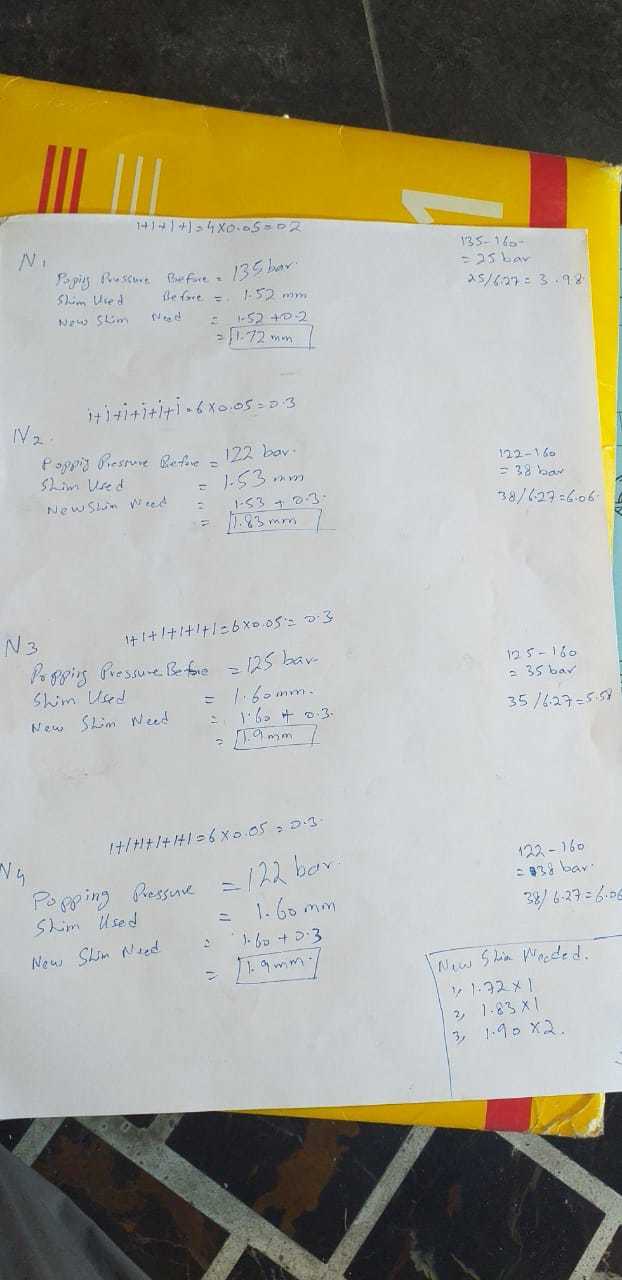 1+1+1+1=4x0.05=02
135-160-
= 25 bar
25/6.27 = 3.98
N1
Popping Pressure Before = 135 bar.
Shim Used Before = 1.52 mm
New Shim Need = 1.52 +0.2
= 1.72 mm
1+1+1+1+1+1=6x0.05=0.3
N2.
Poppig Pressure Before = 122 bar.
Shim Used = 1.53 mm
New Shim Need = 1.53 + 0.3.
= 1.83 mm
122-160
= 38 bar
38/6.27=6.06.
1+1+1+1+1+1=6x0.05=0.3
N3
Popping Pressure Before = 125 bar
Shim Used = 1.60mm.
New Shim Need = 1.60 + 0.3.
= 1.9mm
125-160
= 35 bar
35/6.27=5.58
1+1+1+1+1+1=6x0.05=0.3.
N4
Popping Pressure = 122 bar.
Shim Used = 1.60 mm
New Shim Need = 1.60 +0.3
= 1.9mm.
122-160
= 38 bar.
38/6.27=6.06
New Shim Needed.
1, 1.72 x1
2, 1.83 x1
3, 1.90 x2.